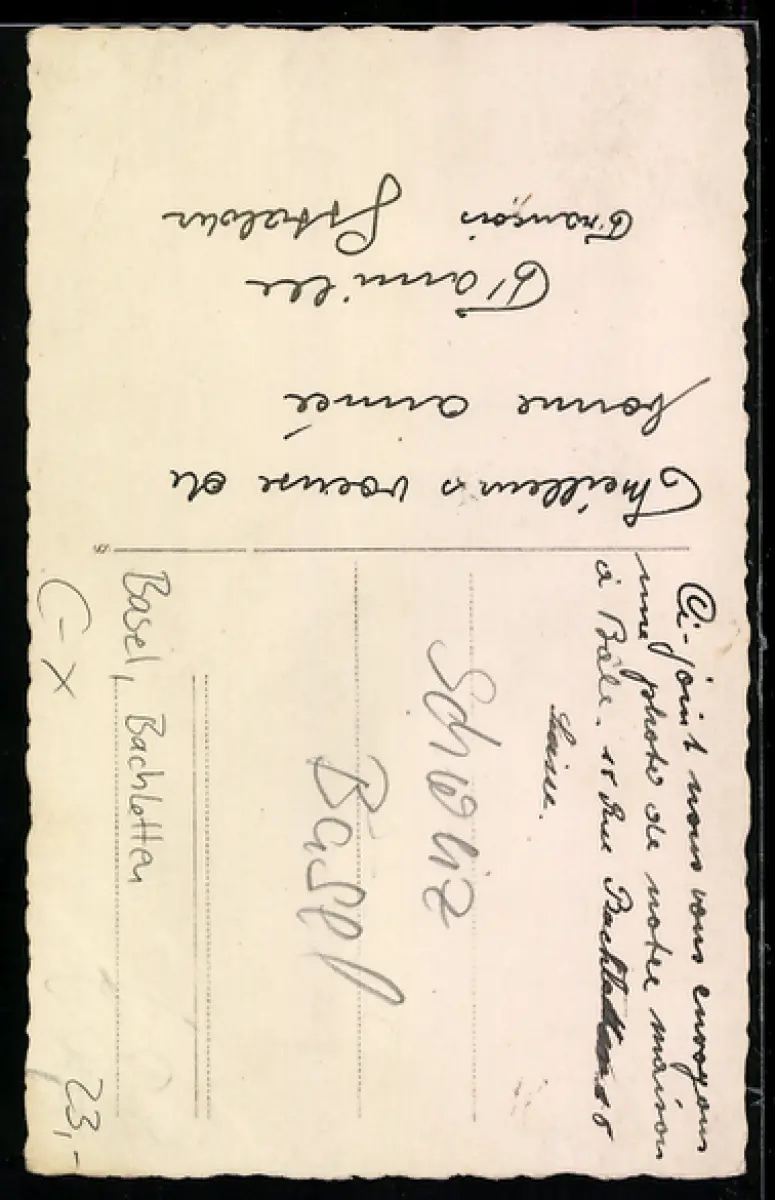 Meilleurs voeuse de
bonne année
Famille
François
Ci-joint nous vous envoyons
une photo de notre maison
à Bâle. 15 Rue Bachletten 15
Suisse.
Schweiz
Basel
Basel, Bachletten
C-X
23,-